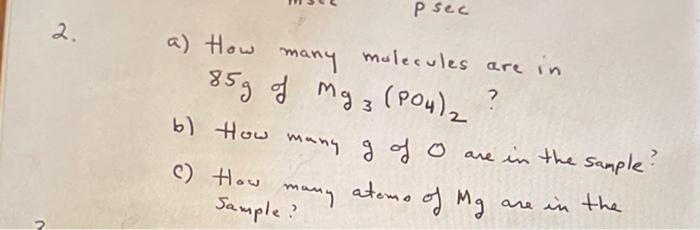 p sec
2.
a) How many molecules are in
85g of Mg₃(PO₄)₂ ?
b) How many g of O are in the sample?
c) How many atoms of Mg are in the
Sample?